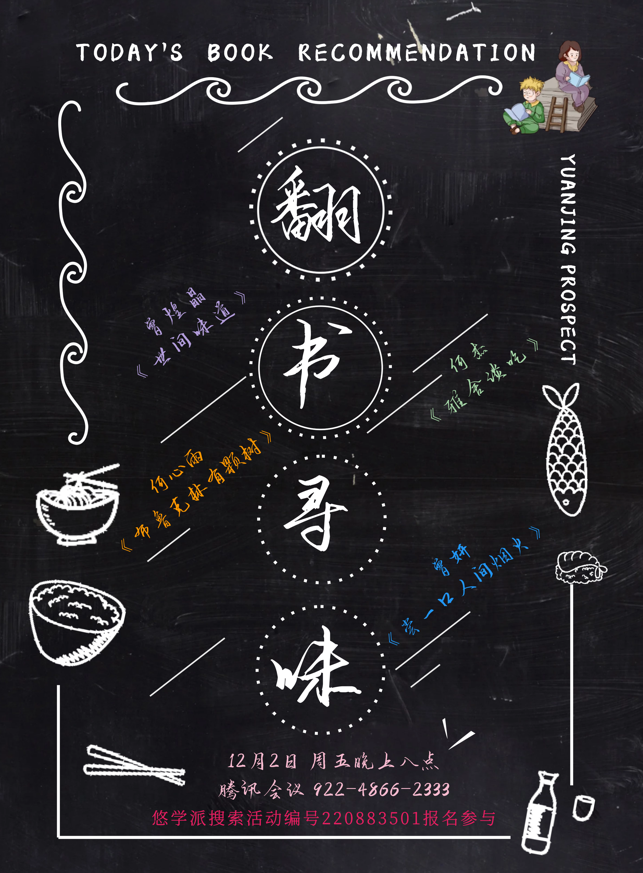 TODAY'S BOOK RECOMMENDATION
YUANJING PROSPECT
翻
书
寻
味
曾煌晶
《世间味道》
何杰
《雅舍谈吃》
何心雨
《布鲁克林有颗树》
曾妍
《尝一口人间烟火》
12月2日 周五晚上八点
腾讯会议 922-4866-2333
悠学派搜索活动编号220883501报名参与